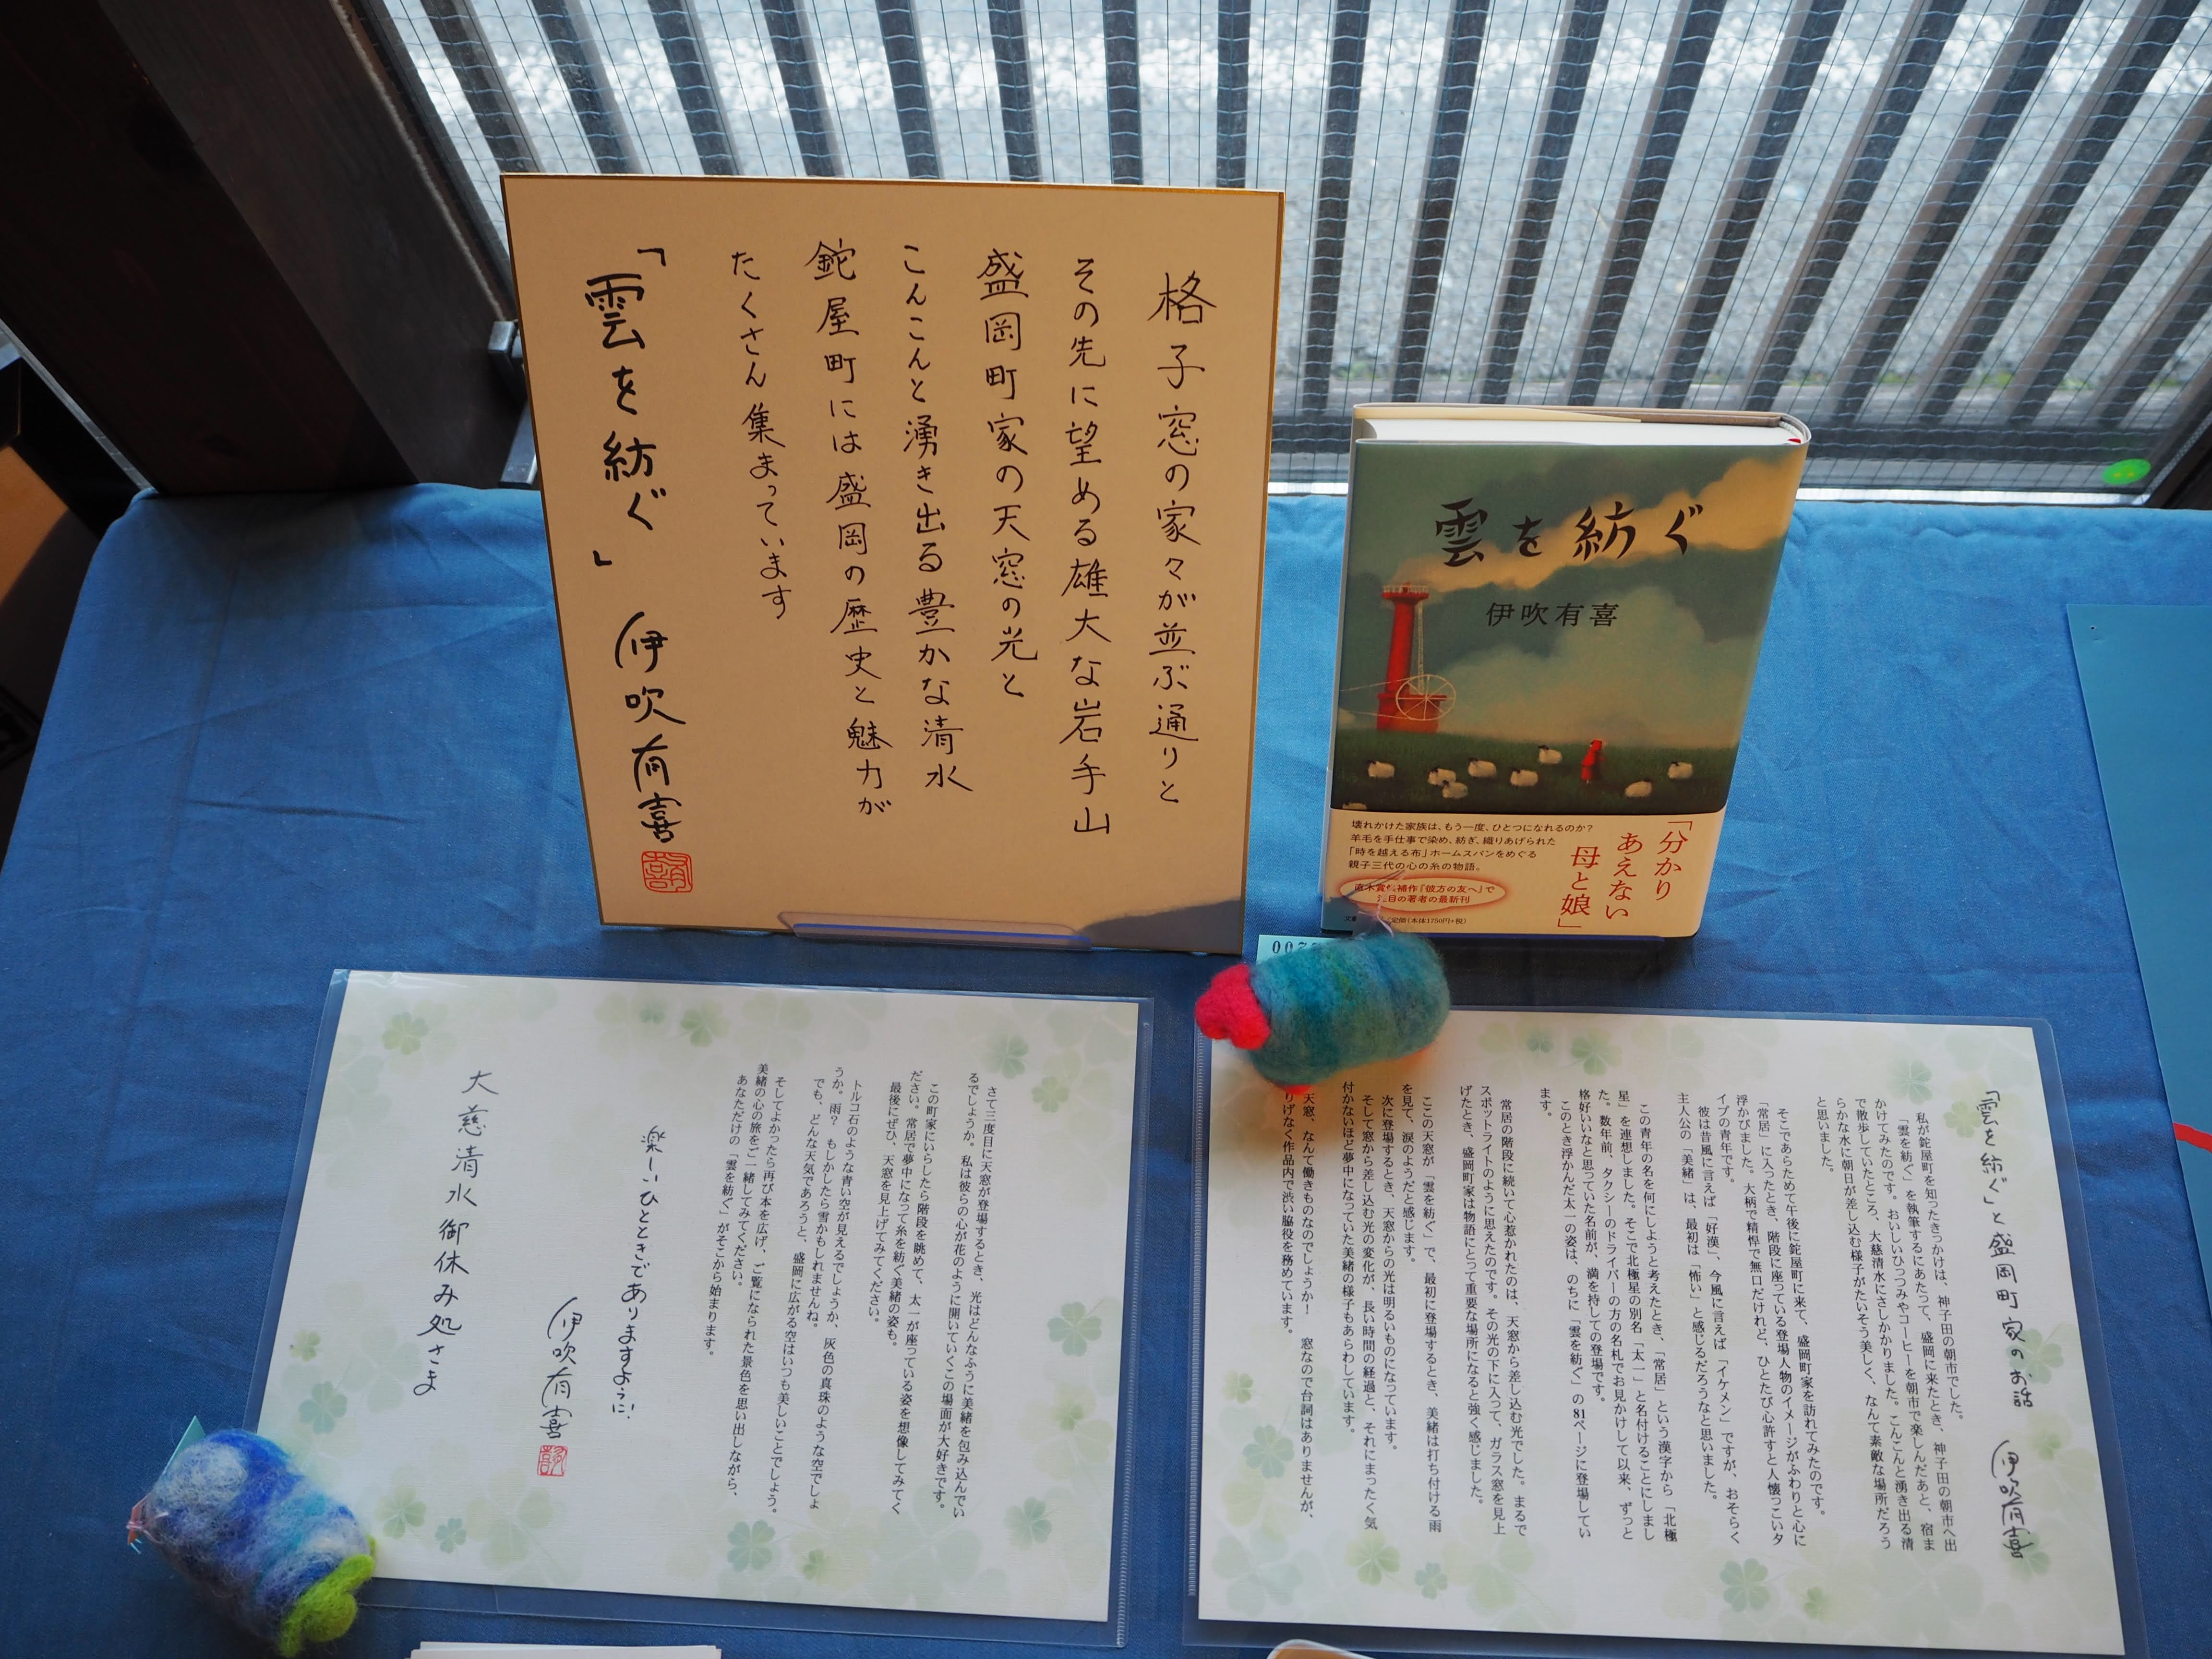 格子窓の家々が並ぶ通りと
その先に望める雄大な岩手山
盛岡町家の天窓の光と
こんこんと湧き出る豊かな清水
鉈屋町には盛岡の歴史と魅力が
たくさん集まっています
「雲を紡ぐ」 伊吹有喜
雲を紡ぐ
伊吹有喜
「分かり
あえない
母と娘」
壊れかけた家族は、もう一度、ひとつになれるのか?
羊毛を手仕事で染め、紡ぎ、織りあげられた
「時を越える布」ホームスパンをめぐる
親子三代の心の糸の物語。
直木賞候補作『彼方の友へ』で
目の著者の最新刊
定価(本体1750円+税)
「雲を紡ぐ」と盛岡町家のお話 伊吹有喜
私が鉈屋町を知ったきっかけは、神子田の朝市でした。
「雲を紡ぐ」を執筆するにあたって、盛岡に来たとき、神子田の朝市へ出
かけてみたのです。おいしいひっつみやコーヒーを朝市で楽しんだあと、宿ま
で散歩していたところ、大慈清水にさしかかりました。こんこんと湧き出る清
らかな水に朝日が差し込む様子がたいそう美しく、なんて素敵な場所だろう
と思いました。
そこであらためて午後に鉈屋町に来て、盛岡町家を訪れてみたのです。
「常居」に入ったとき、階段に座っている登場人物のイメージがふわりと心に
浮かびました。大柄で精悍で無口だけれど、ひとたび心許すと人懐っこいタ
イプの青年です。
彼は昔風に言えば「好漢」、今風に言えば「イケメン」ですが、おそらく
主人公の「美緒」は、最初は「怖い」と感じるだろうなと思いました。
この青年の名を何にしようと考えたとき、「常居」という漢字から「北極
星」を連想しました。そこで北極星の別名「太一」と名付けることにしまし
た。数年前、タクシーのドライバーの方の名札でお見かけして以来、ずっと
格好いいなと思っていた名前が、満を持しての登場です。
このとき浮かんだ太一の姿は、のちに「雲を紡ぐ」の81ページに登場してい
ます。
常居の階段に続いて心惹かれたのは、天窓から差し込む光でした。まるで
スポットライトのように思えたのです。その光の下に入って、ガラス窓を見上
げたとき、盛岡町家は物語にとって重要な場所になると強く感じました。
ここの天窓が「雲を紡ぐ」で、最初に登場するとき、美緒は打ち付ける雨
を見て、涙のようだと感じます。
次に登場するとき、天窓からの光は明るいものになっています。
そして窓から差し込む光の変化が、長い時間の経過と、それにまったく気
付かないほど夢中になっていた美緒の様子もあらわしています。
天窓、なんて働きものなのでしょうか! 窓なので台詞はありませんが、
りげなく作品内で渋い脇役を務めています。
さて三度目に天窓が登場するとき、光はどんなふうに美緒を包み込んでい
るでしょうか。私は彼らの心が花のように開いていくこの場面が大好きです。
この町家にいらしたら階段を眺めて、太一が座っている姿を想像してみてく
ださい。常居で夢中になって糸を紡ぐ美緒の姿も。
最後にぜひ、天窓を見上げてみてください。
トルコ石のような青い空が見えるでしょうか、灰色の真珠のような空でしょ
うか。雨? もしかしたら雪かもしれませんね。
でも、どんな天気であろうと、盛岡に広がる空はいつも美しいことでしょう。
そしてよかったら再び本を広げ、ご覧になられた景色を思い出しながら、
美緒の心の旅をご一緒してみてください。
あなただけの「雲を紡ぐ」がそこから始まります。
楽しいひとときでありますように!
伊吹有喜
大慈清水御休み処さま